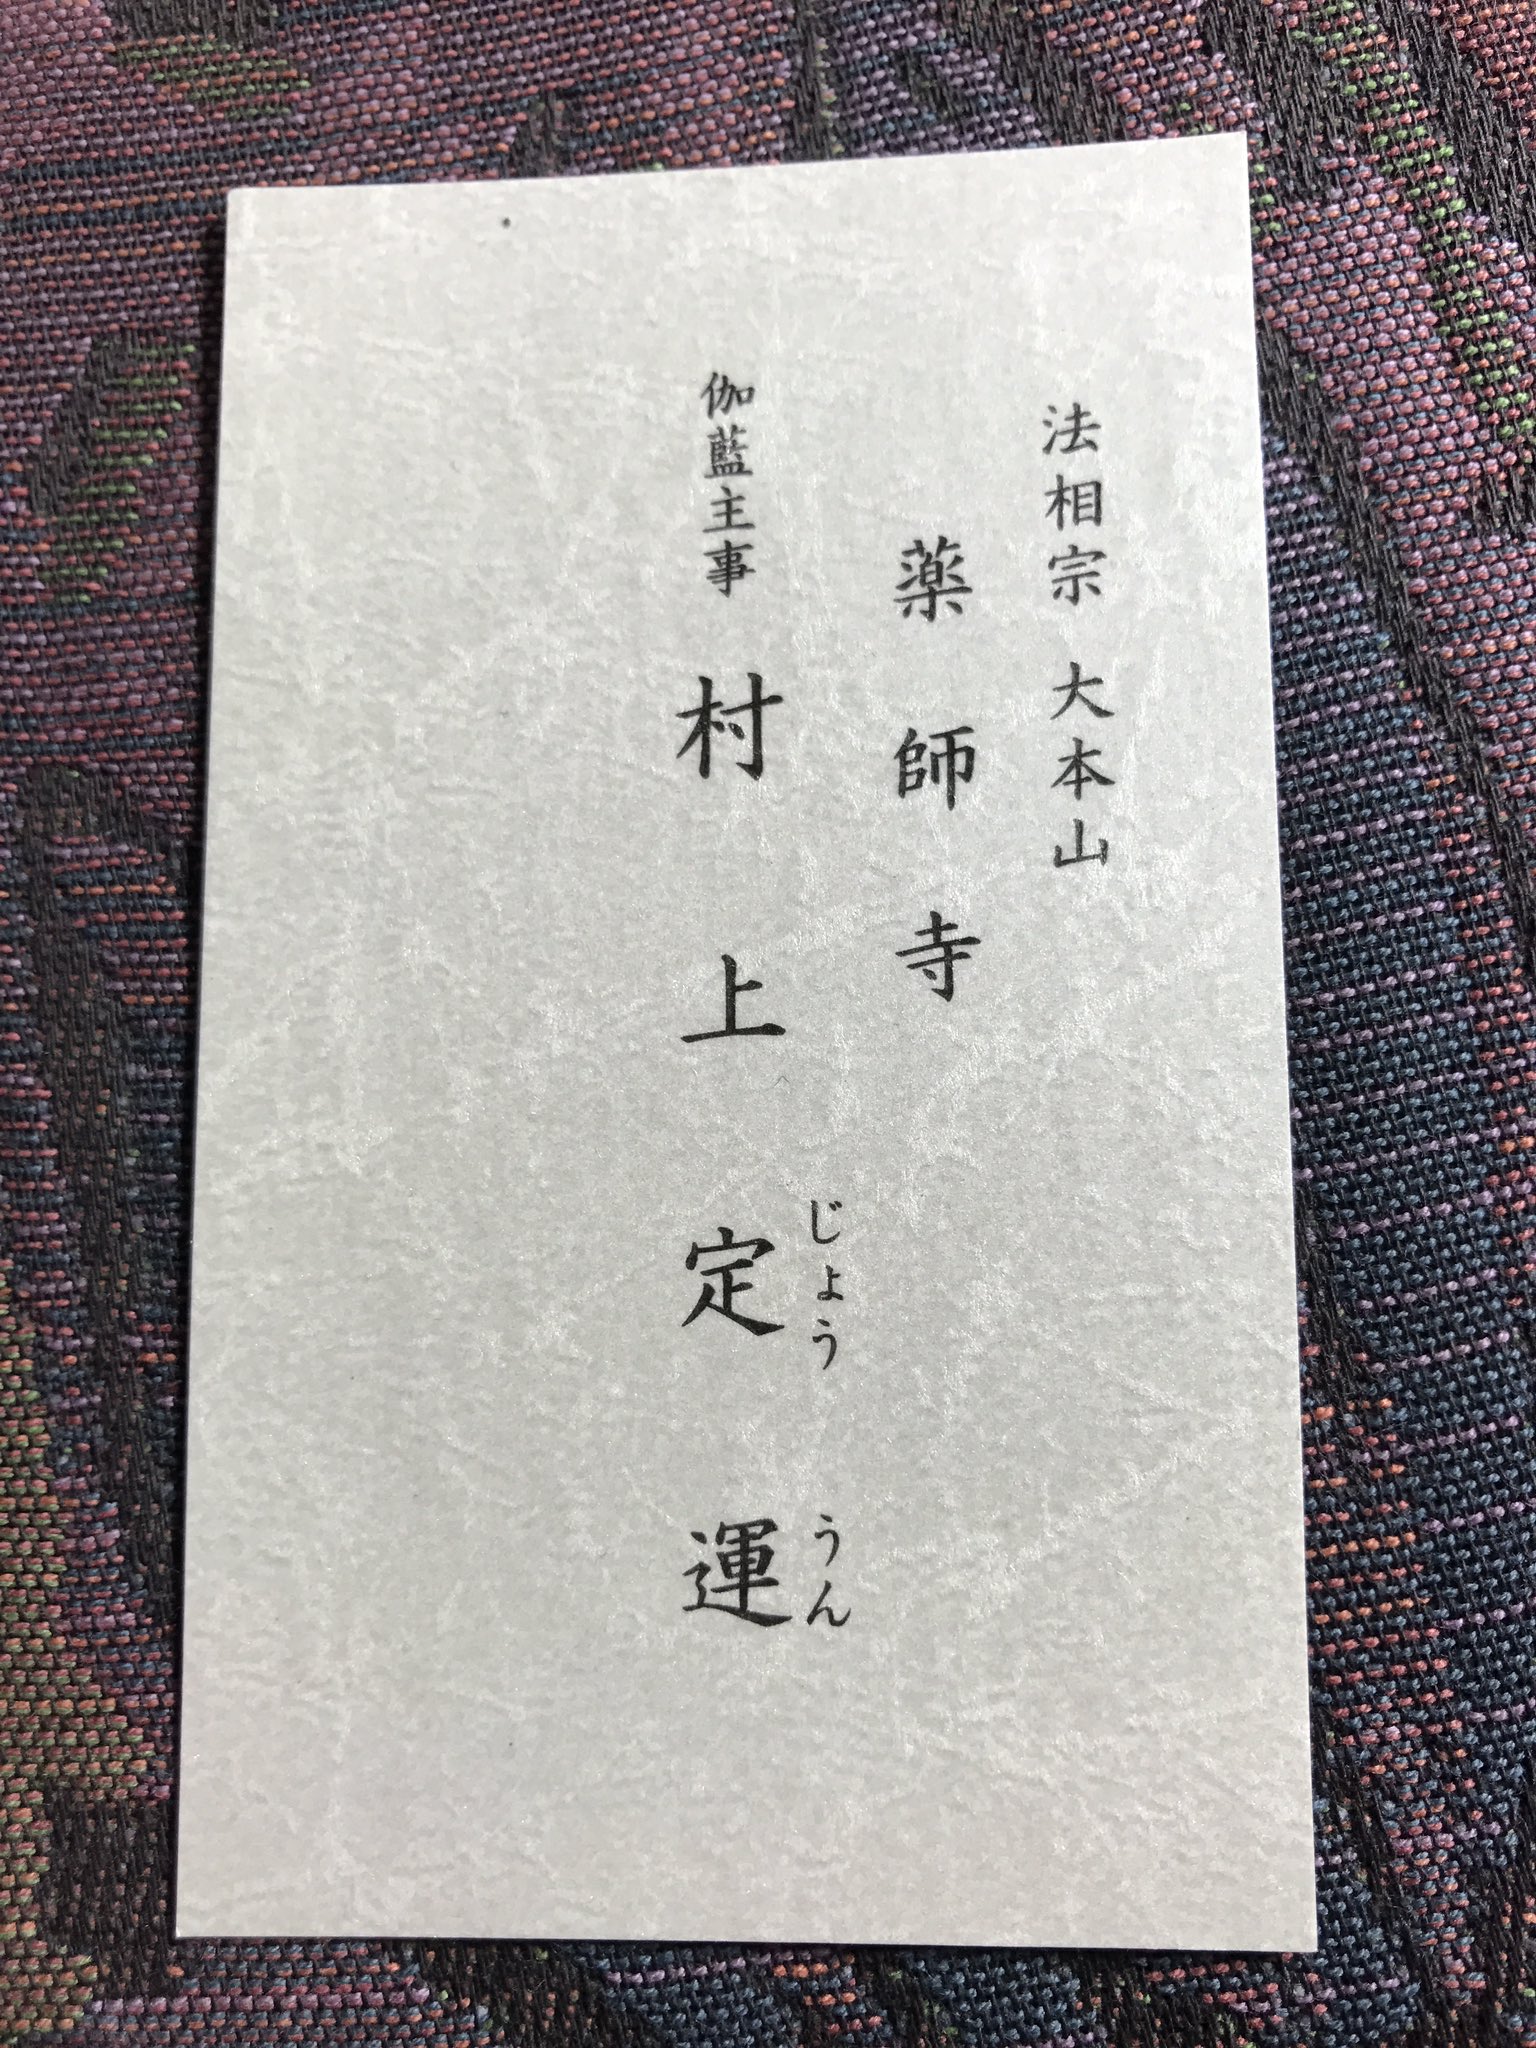 法相宗 大本山
薬師寺
伽藍主事 村上定運
じょう うん